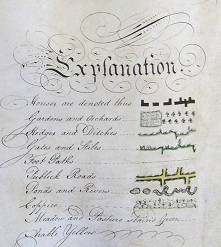 Explanation.
Houses are denoted thus
Gardens and Orchards
Hedges and Ditches
Gates and Stiles
Foot Paths
Publick Roads
Ponds and Rivers
Coppice
Meadow and Pasture stained Green
Arable Yellow